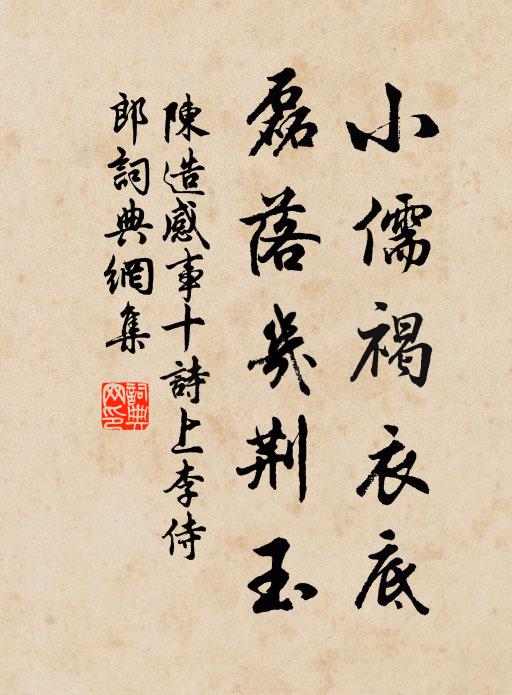 小儒褐衣底
磊落幾荆玉
陳造感事十詩上李侍
郎詞典網集
詞典網印